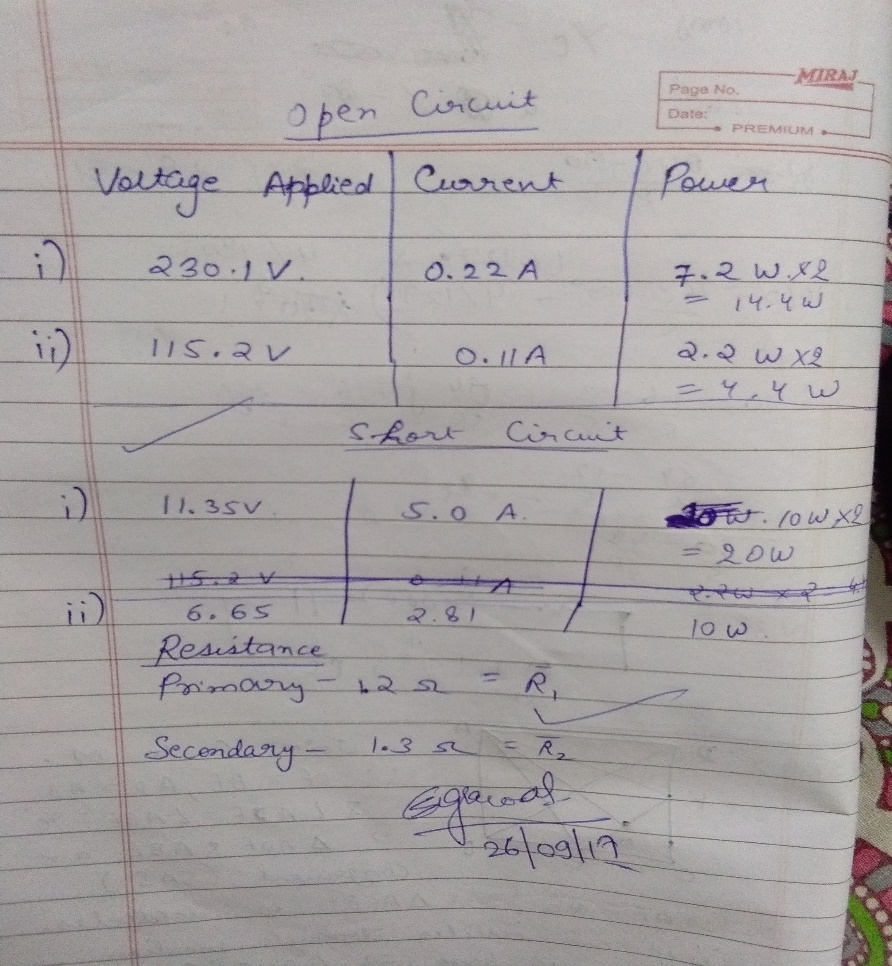 MIRAJ
Page No.
Date:
PREMIUM
Open Circuit
Voltage Applied Current Power
i) 230.1 V. 0.22 A 7.2 W. x2
= 14.4 W
ii) 115.2 V 0.11 A 2.2 W x2
= 4.4 W
Short Circuit
i) 11.35V 5.0 A. 10W. 10W x2
= 20W
115.2 V 0.11 A 2.2W x 2
ii) 6.65 2.81 10 W
Resistance
Primary - 1.2 Ω = R̄₁
Secondary - 1.3 Ω = R̄₂
26/09/17